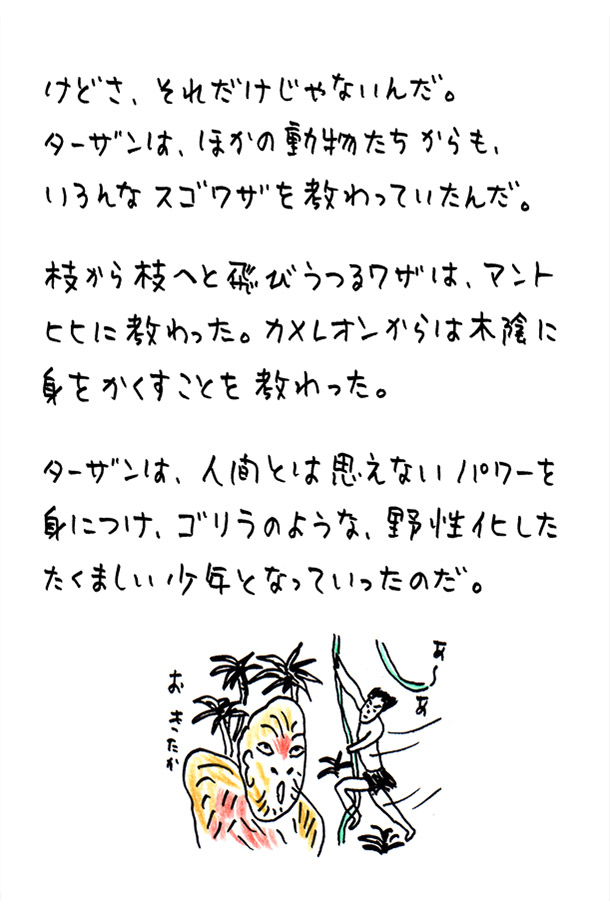 けどさ、それだけじゃないんだ。
ターザンは、ほかの動物たちからも、
いろんなスゴワザを教わっていたんだ。
枝から枝へと飛びうつるワザは、マント
ヒヒに教わった。カメレオンからは木陰に
身をかくすことを教わった。
ターザンは、人間とは思えないパワーを
身につけ、ゴリラのような、野性化した
たくましい少年となっていったのだ。
あ〜
あ
お
きったか